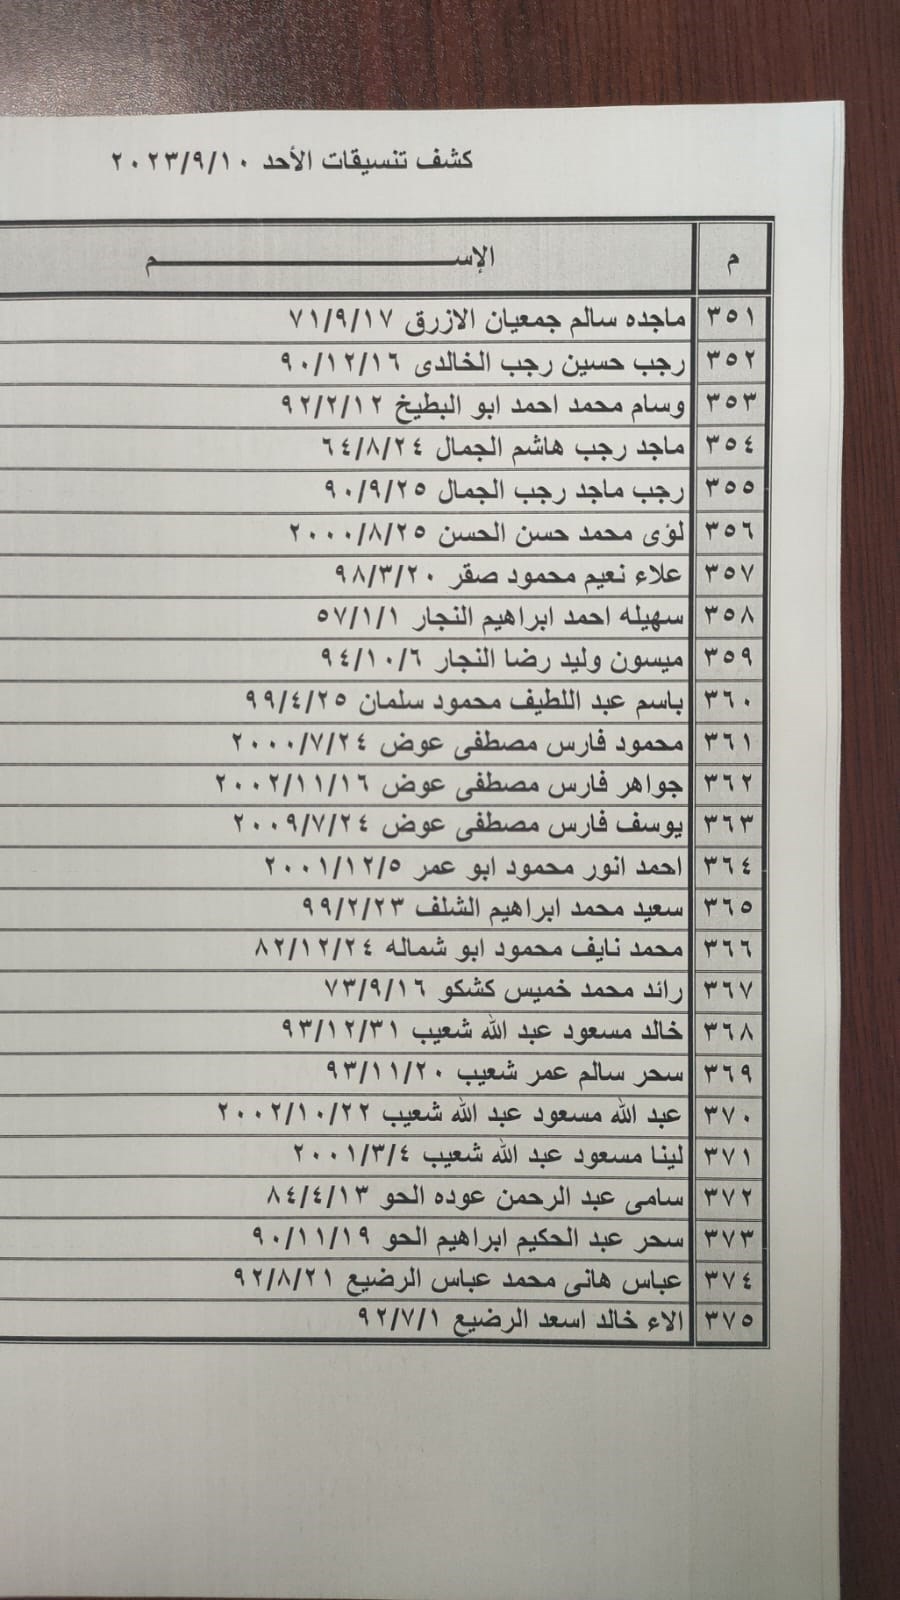 كشف تنسيقات الأحد ٢٠٢٣/٩/١٠
م الإســـــــــــــــــــــــــــــــــــم
٣٥١ ماجده سالم جمعيان الازرق ٧١/٩/١٧
٣٥٢ رجب حسين رجب الخالدى ٩٠/١٢/١٦
٣٥٣ وسام محمد احمد ابو البطيخ ٩٢/٢/١٢
٣٥٤ ماجد رجب هاشم الجمال ٦٤/٨/٢٤
٣٥٥ رجب ماجد رجب الجمال ٩٠/٩/٢٥
٣٥٦ لؤى محمد حسن الحسن ٢٠٠٠/٨/٢٥
٣٥٧ علاء نعيم محمود صقر ٩٨/٣/٢٠
٣٥٨ سهيله احمد ابراهيم النجار ٥٧/١/١
٣٥٩ ميسون وليد رضا النجار ٩٤/١٠/٦
٣٦٠ باسم عبد اللطيف محمود سلمان ٩٩/٤/٢٥
٣٦١ محمود فارس مصطفى عوض ٢٠٠٠/٧/٢٤
٣٦٢ جواهر فارس مصطفى عوض ٢٠٠٢/١١/١٦
٣٦٣ يوسف فارس مصطفى عوض ٢٠٠٩/٧/٢٤
٣٦٤ احمد انور محمود ابو عمر ٢٠٠١/١٢/٥
٣٦٥ سعيد محمد ابراهيم الشلف ٩٩/٢/٢٣
٣٦٦ محمد نايف محمود ابو شماله ٨٢/١٢/٢٤
٣٦٧ رائد محمد خميس كشكو ٧٣/٩/١٦
٣٦٨ خالد مسعود عبد الله شعيب ٩٣/١٢/٣١
٣٦٩ سحر سالم عمر شعيب ٩٣/١١/٢٠
٣٧٠ عبد الله مسعود عبد الله شعيب ٢٠٠٢/١٠/٢٢
٣٧١ لينا مسعود عبد الله شعيب ٢٠٠١/٣/٤
٣٧٢ سامى عبد الرحمن عوده الحو ٨٤/٤/١٣
٣٧٣ سحر عبد الحكيم ابراهيم الحو ٩٠/١١/١٩
٣٧٤ عباس هانى محمد عباس الرضيع ٩٢/٨/٢١
٣٧٥ الاء خالد اسعد الرضيع ٩٢/٧/١